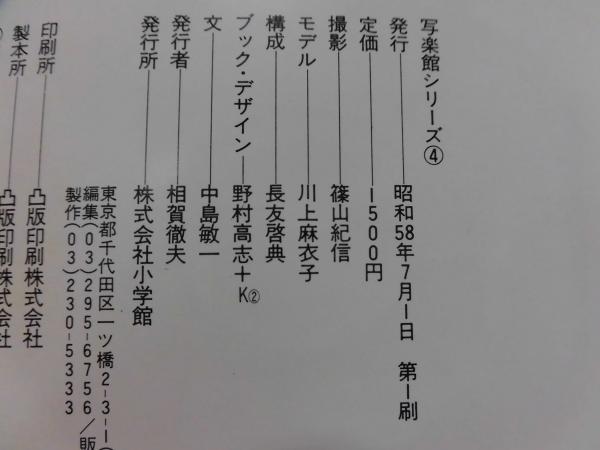 写楽館シリーズ④
発行――昭和58年7月1日　第1刷
定価――1500円
撮影――篠山紀信
モデル――川上麻衣子
構成――長友啓典
ブック・デザイン――野村高志＋K②
文――中島敏一
発行者――相賀徹夫
発行所――株式会社小学館
東京都千代田区一ツ橋2-3-1(
編集(03)295-6756/販
製作(03)230-5333
印刷所――凸版印刷株式会社
製本所――凸版印刷株式会社